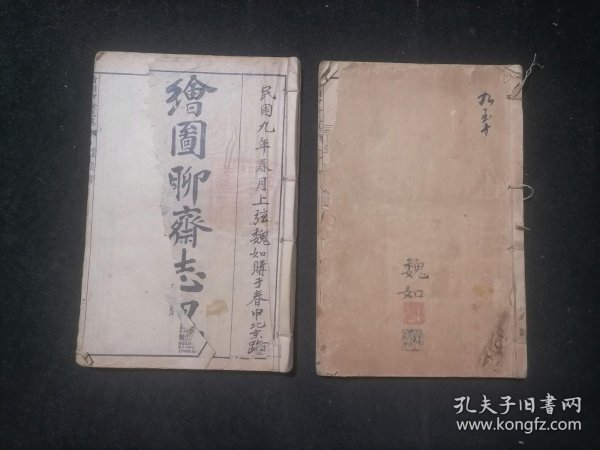 民國九年春月上弦魏如購于春申北京路
繪圖聊齋志異
九至十
魏如
孔夫子旧书网
www.kongfz.com